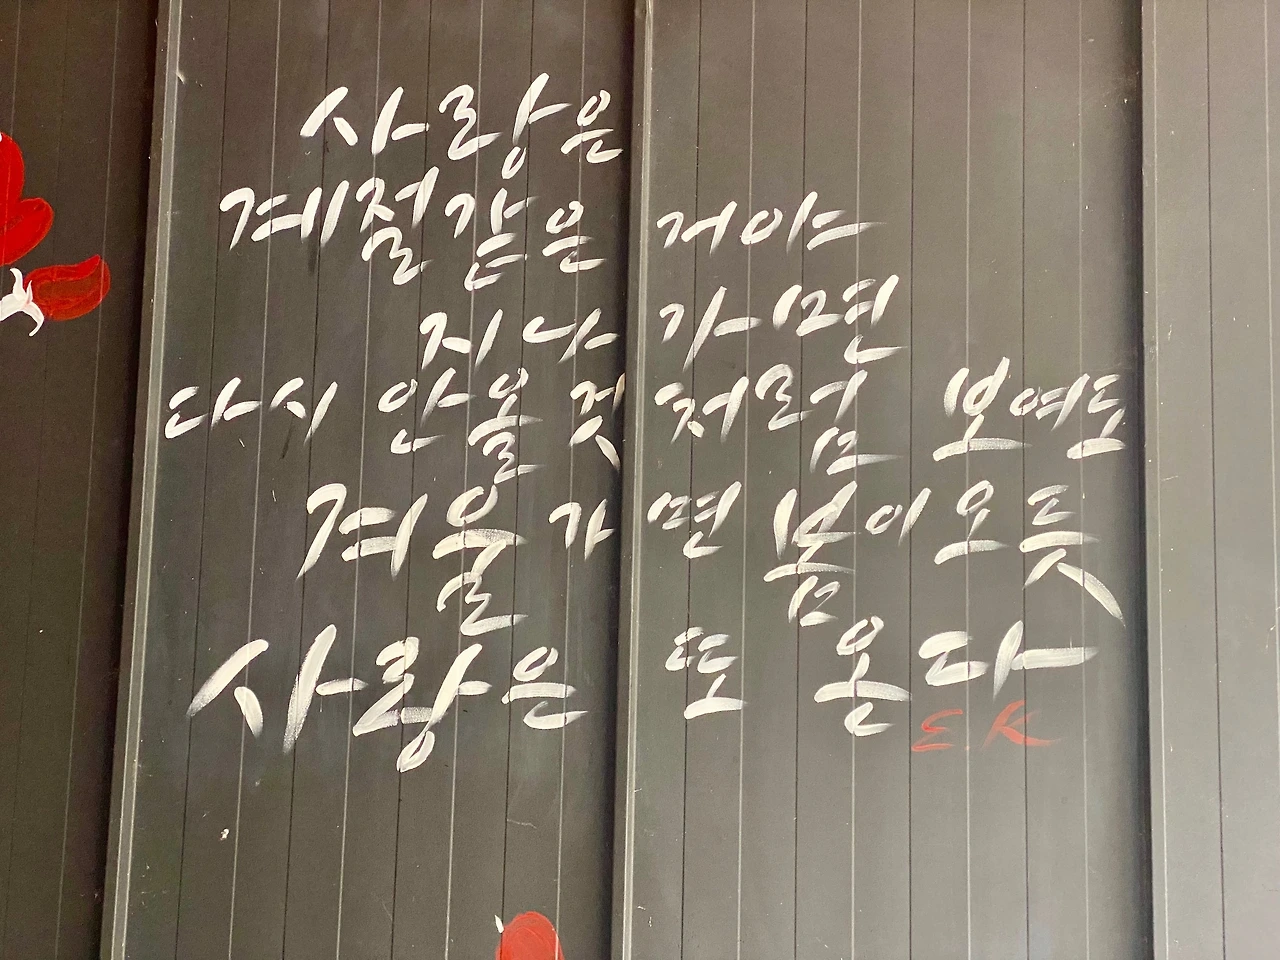 사랑은
계절같은 거야
지나가면
다시 안올 것처럼 보여도
겨울가면 봄이 오듯
사랑은 또 온다
E.K